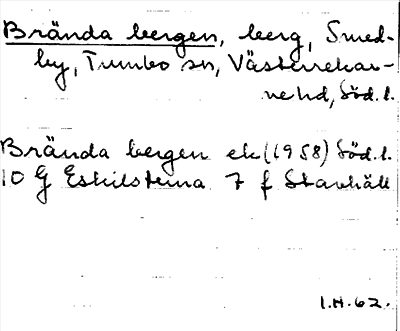 Brända bergen, berg, Smed-
by, Tumbo sn, Västerrekar-
ne hd, Söd. l.
Brända bergen ek (1958) Söd. l.
10 G Eskilstuna 7 f Stavhäll
I.H.62.